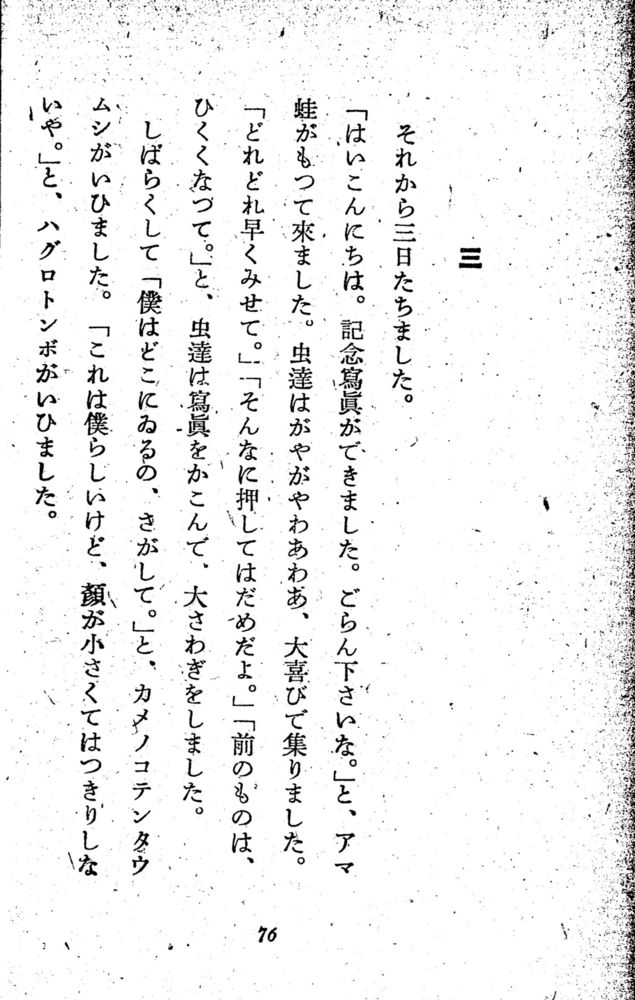 三
それから三日たちました。
「はいこんにちは。記念寫眞ができました。ごらん下さいな。」と、アマ
蛙がもつて來ました。虫達はがやがやわあわあ、大喜びで集りました。
「どれどれ早くみせて。」「そんなに押してはだめだよ。」「前のものは、
ひくくなつて。」と、虫達は寫眞をかこんで、大さわぎをしました。
しばらくして「僕はどこにゐるの、さがして。」と、カメノコテンタウ
ムシがいひました。「これは僕らしいけど、顏が小さくてはつきりしな
いや。」と、ハグロトンボがいひました。
76